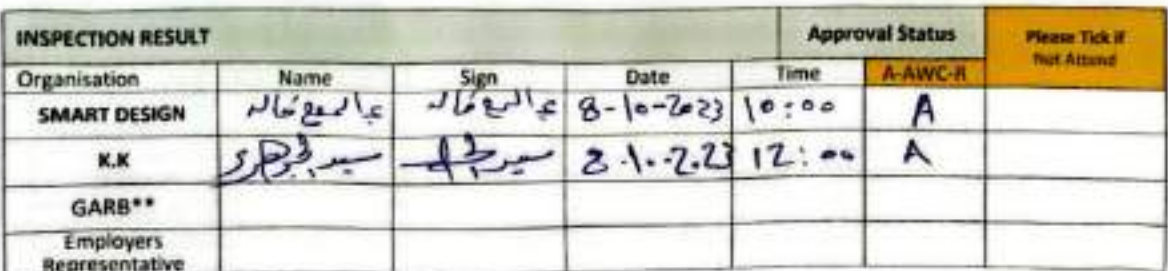 INSPECTION RESULT Approval Status Please Tick if
Not Attend
Organisation Name Sign Date Time A-AWC-R
SMART DESIGN 8-10-2023 10:00 A
K.K سيد الجوهري سيد 8-10-2023 12:00 A
GARB**
Employers
Representative